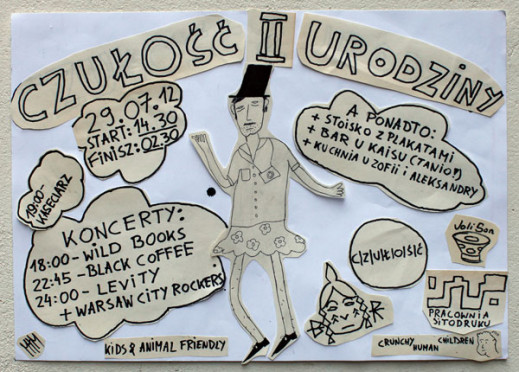 CZUŁOŚĆ II URODZINY
29.07.12
START: 14.30
FINISZ: 02.30
A PONADTO:
+ STOISKO Z PLAKATAMI
+ BAR U KAISU (TANIO!)
+ KUCHNIA U ZOFII i ALEKSANDRY
19:00-
WĄSECIARZ
KONCERTY:
18:00 - WILD BOOKS
22:45 - BLACK COFFEE
24:00 - LEVITY
+ WARSAW CITY ROCKERS
C|Z|U|Ł|O|Ś|Ć
Voli Son
PRACOWNIA
SITODRUKU
KIDS & ANIMAL FRIENDLY
CRUNCHY CHILDREN
HUMAN